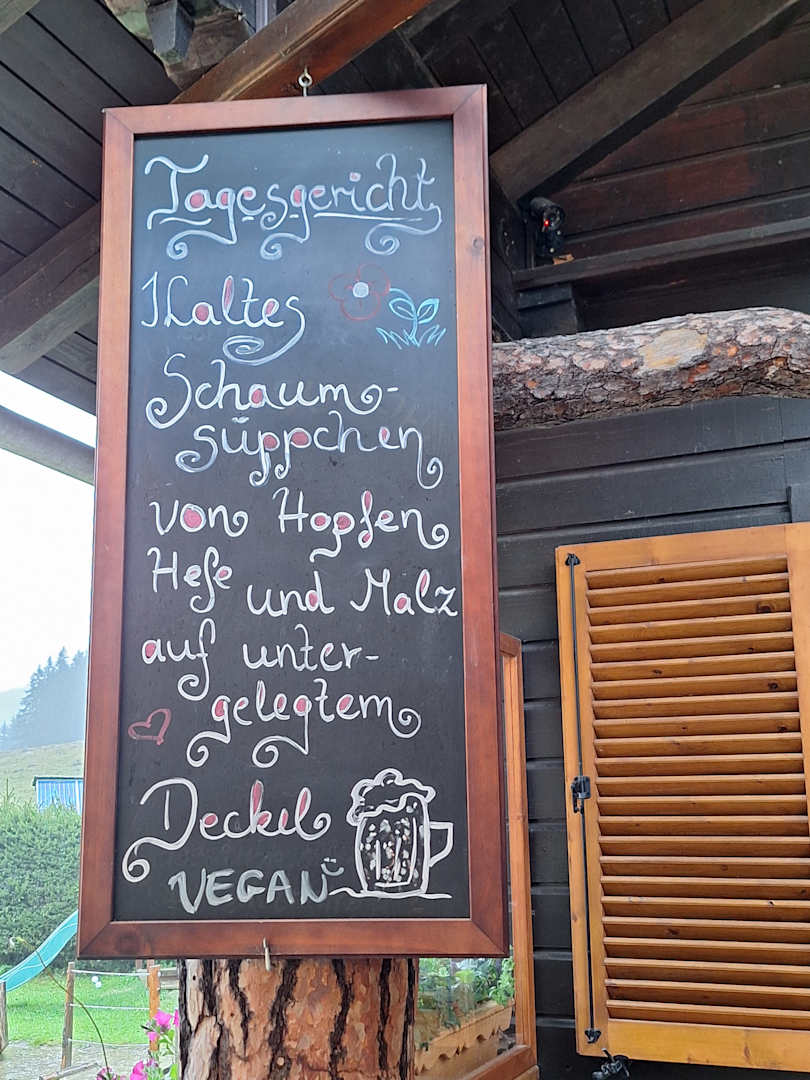 Tagesgericht
Kaltes
Schaum-
süppchen
von Hopfen
Hefe und Malz
auf unter-
gelegtem
Deckel
VEGAN